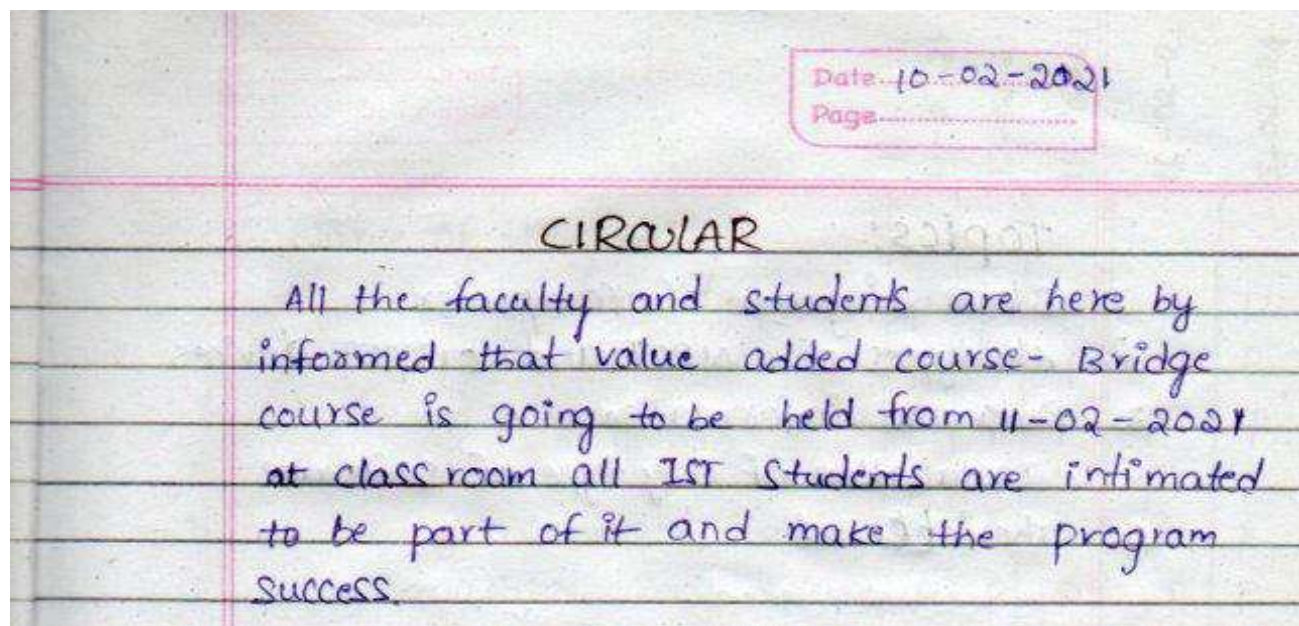 Date 10-02-2021
Page
CIRCULAR
All the faculty and students are here by
informed that value added course- Bridge
course is going to be held from 11-02-2021
at class room all IST Students are intimated
to be part of it and make the program
success.